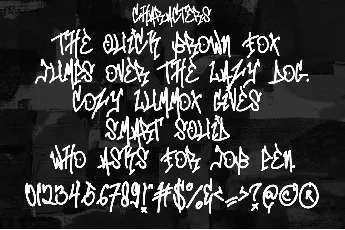 CHARACTERS
THE QUICK BROWN FOX
JUMPS OVER THE LAZY DOG.
COZY LUMMOX GIVES
SMART SQUID
WHO ASKS FOR JOB PEN.
0123456789!"#$%&<=>?@©®